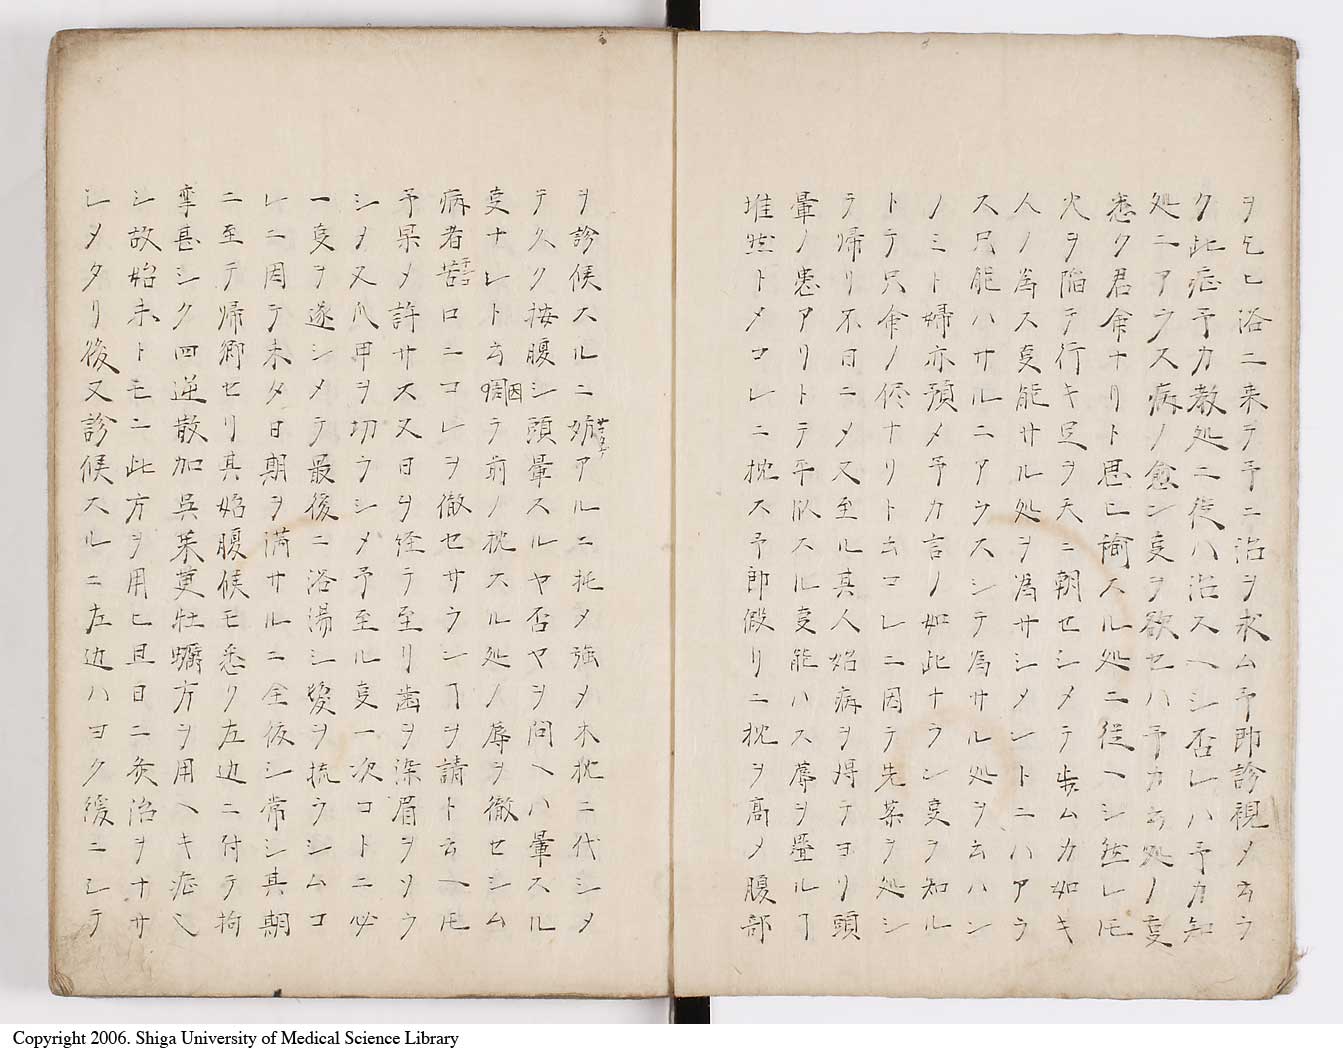 ヲ乞ヒ浴ニ来テ予ニ治ヲ求ム予即診視メ云ク
ク此症予カ教処ニ従ハ治スヘシ否レハ予カ知
処ニアラス病ノ愈ン叓ヲ欲セハ予カ云処ノ叓
悉ク君命ナリト思ヒ諭スル処ニ従ヘシ然レ𪜈
火ヲ陥テ行キ足ヲ天ニ朝セシメテ歩ムカ如キ
人ノ為ス叓能サル処ヲ為サシメントニハアラ
ス只能ハサルニアラスシテ為サル処ヲ云ハン
ノミト婦亦預メ予カ言ノ如此ナラン叓ヲ知ル
トテ只命ノ侭ナリト云コレニ因テ先薬ヲ処シ
テ帰リ不日ニメ又至ル其人始病ヲ得テヨリ頭
暈ノ患アリトテ平臥スル叓能ハス蓐ヲ畳ルヿ
堆然トメコレニ枕ス予即假リニ枕ヲ高メ腹部
ヲ診候スルニ妨アルニ托メ強メ木枕ニ代シメ
テ久ク按腹シ頭暈スルヤ否ヤヲ問ヘハ暈スル
叓ナレト云因テ前ノ枕スル処ノ蓐ヲ徹セシム
病者苦口ニコレヲ徹セサランヿヲ請ト云ヘ𪜈
予果メ許サス又日ヲ経テ至リ歯ヲ染眉ヲソラ
シヲ又爪甲ヲ切ラシメ予至ル叓一次コトニ必
一叓ヲ遂シメテ最後ニ浴湯シ髪ヲ梳ラシムコ
レニ因テ未タ日朝ヲ満サルニ全佼シ常シ其期
ニ至テ帰郷セリ其始腹候モ悉ク左辺ニ付テ拘
挛甚シク四逆散加呉茱萸牡蠣方ヲ用ヘキ症ヘ
シ故始末トモニ此方ヲ用ヒ且日ニ灸治ヲナサ
シメタリ後又診候スルニ左辺ハヨク緩ニシテ
Copyright 2006. Shiga University of Medical Science Library